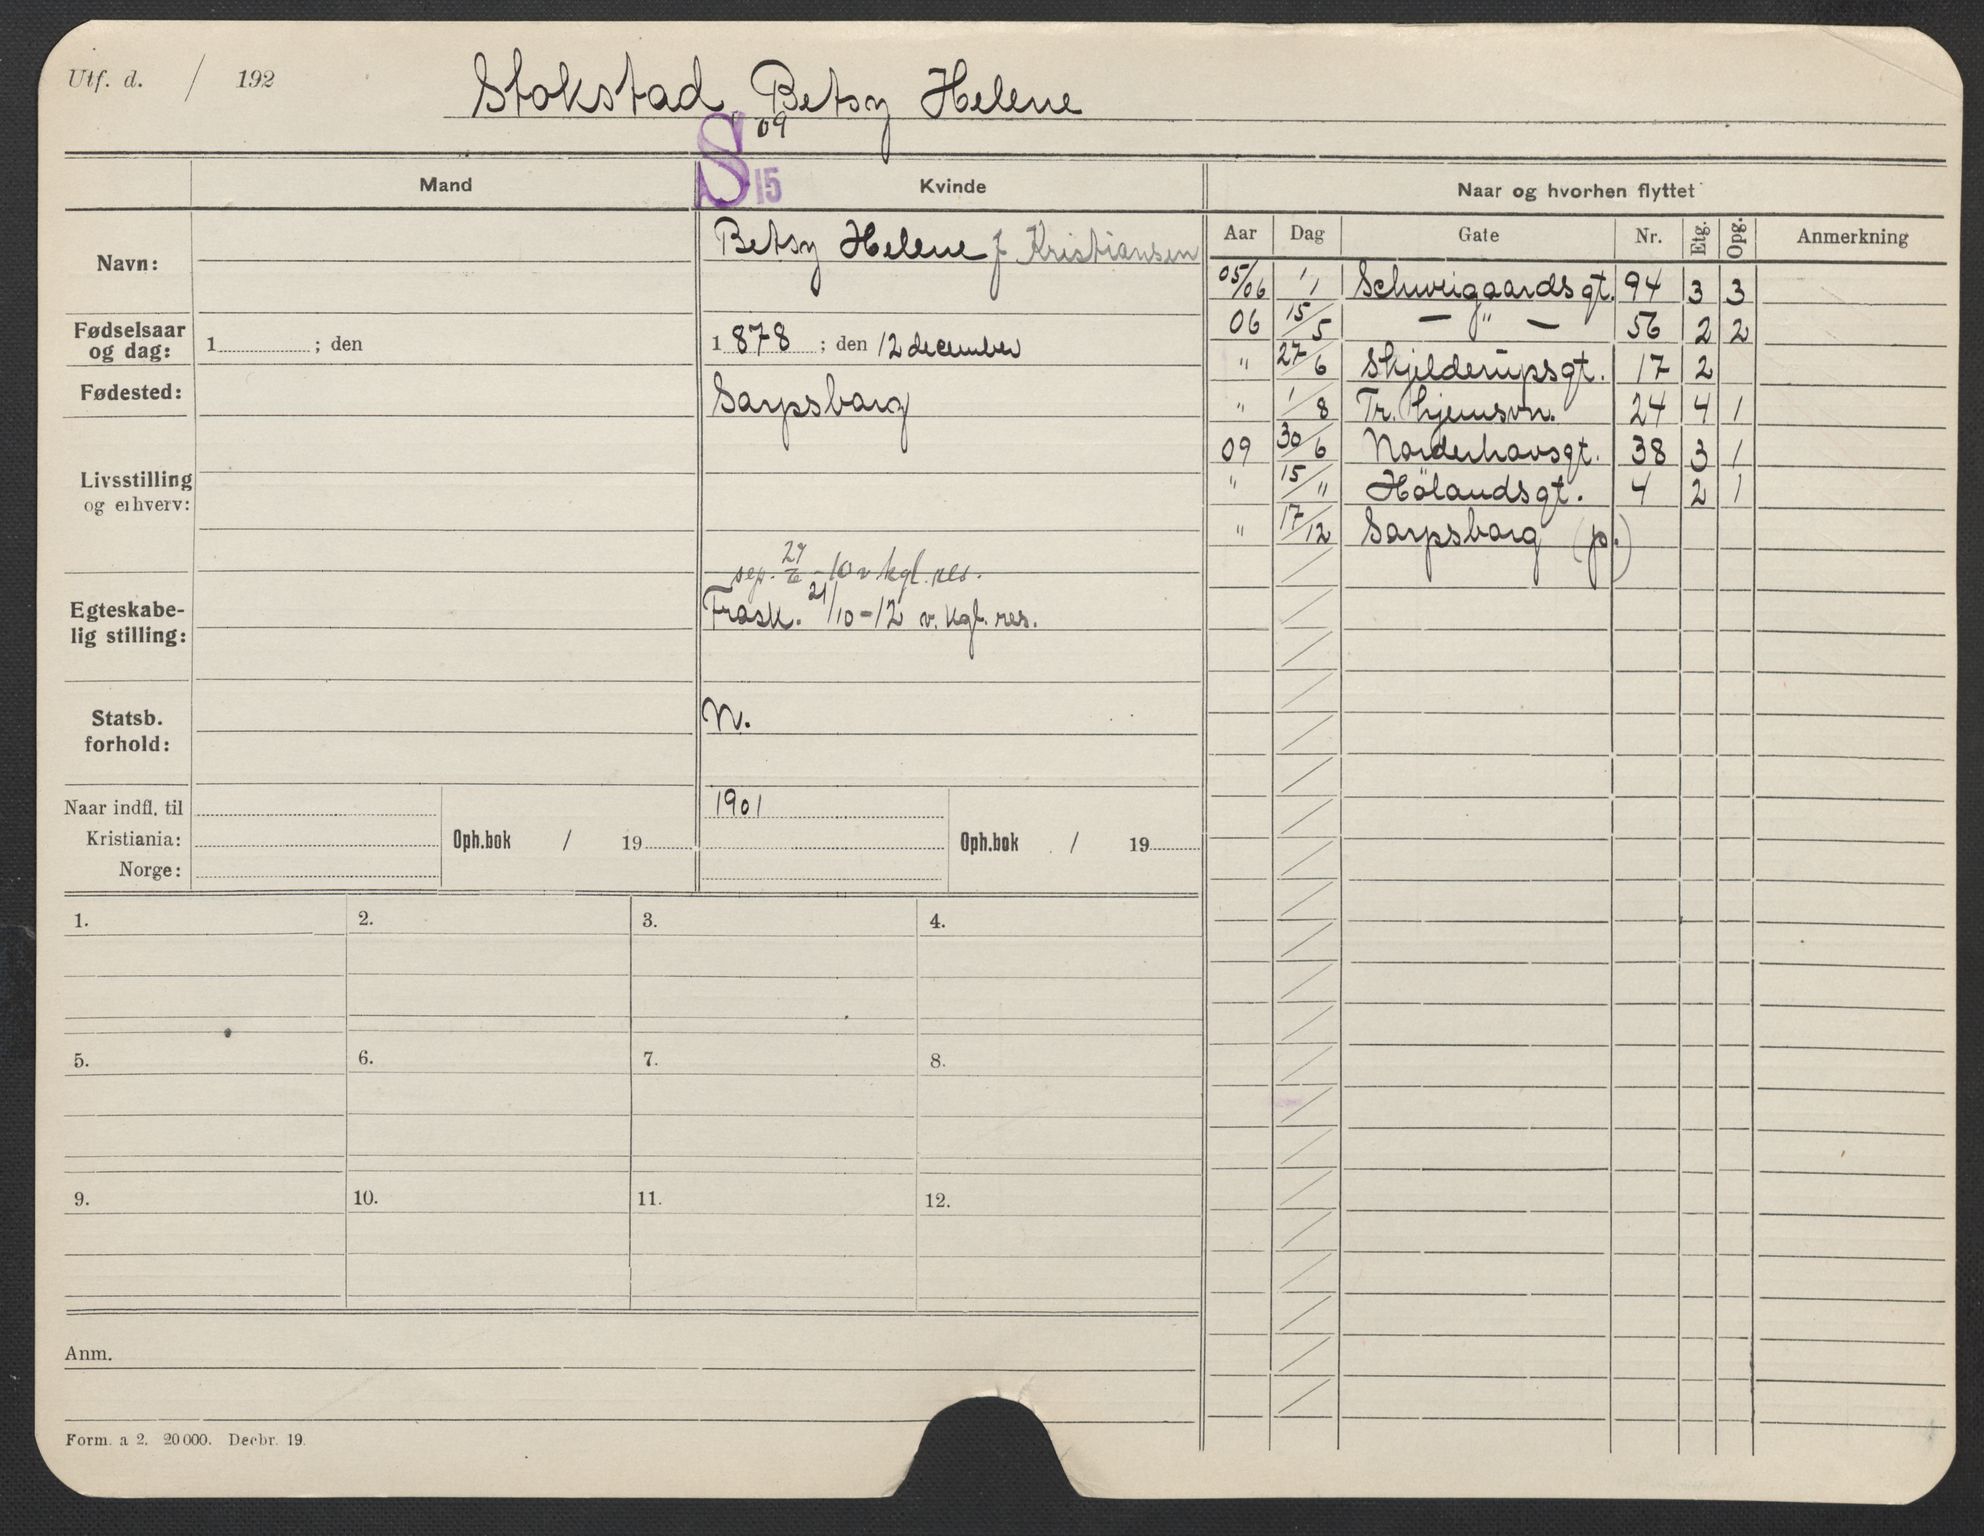 Utf. d. / 192
Stokstad, Betsy Helene
S 15 09
Mand
Kvinde
Naar og hvorhen flyttet
Navn:
Betsy Helene f Kristiansen
Fødselsaar og dag:
1 ; den
1 878 ; den 12 december
Fødested:
Sarpsborg
Livsstilling
og erhverv:
Egteskabe-
lig stilling:
sep. 27/6 - 10 v kgl. res.
Frask. 21/10 - 12 v. kgl. res.
Statsb.
forhold:
N.
Naar indfl. til
Kristiania:
Norge:
Oph.bok / 19
1901
Oph.bok / 19
Aar Dag Gate Nr. Etg. Opg. Anmerkning
05/06 1/1 Schweigaardsgt. 94 3 3
06 15/5 — " — 56 2 2
" 27/6 Skjelderupsgt. 17 2
" 1/8 Tr.hjemsvn. 24 4 1
09 30/6 Norderhovsgt. 38 3 1
" 15/" Hölandsgt. 4 2 1
" 17/12 Sarpsborg (p.)
1. 2. 3. 4.
5. 6. 7. 8.
9. 10. 11. 12.
Anm.
Form. a 2. 20 000. Decbr. 19.